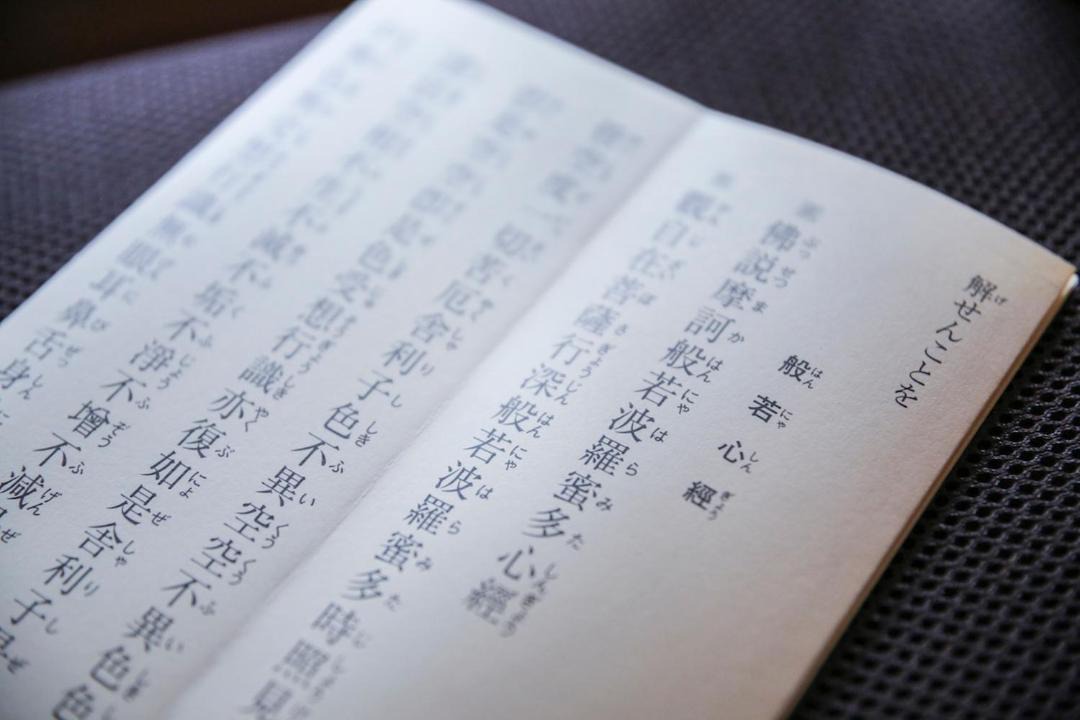 解せんことを
般若心經
佛説摩訶般若波羅蜜多心經
觀自在菩薩行深般若波羅蜜多時照見
一切苦厄舍利子色不異空空不異色色
是色受想行識亦復如是舍利子是
不生不滅不垢不淨不增不減是
無眼耳鼻舌身